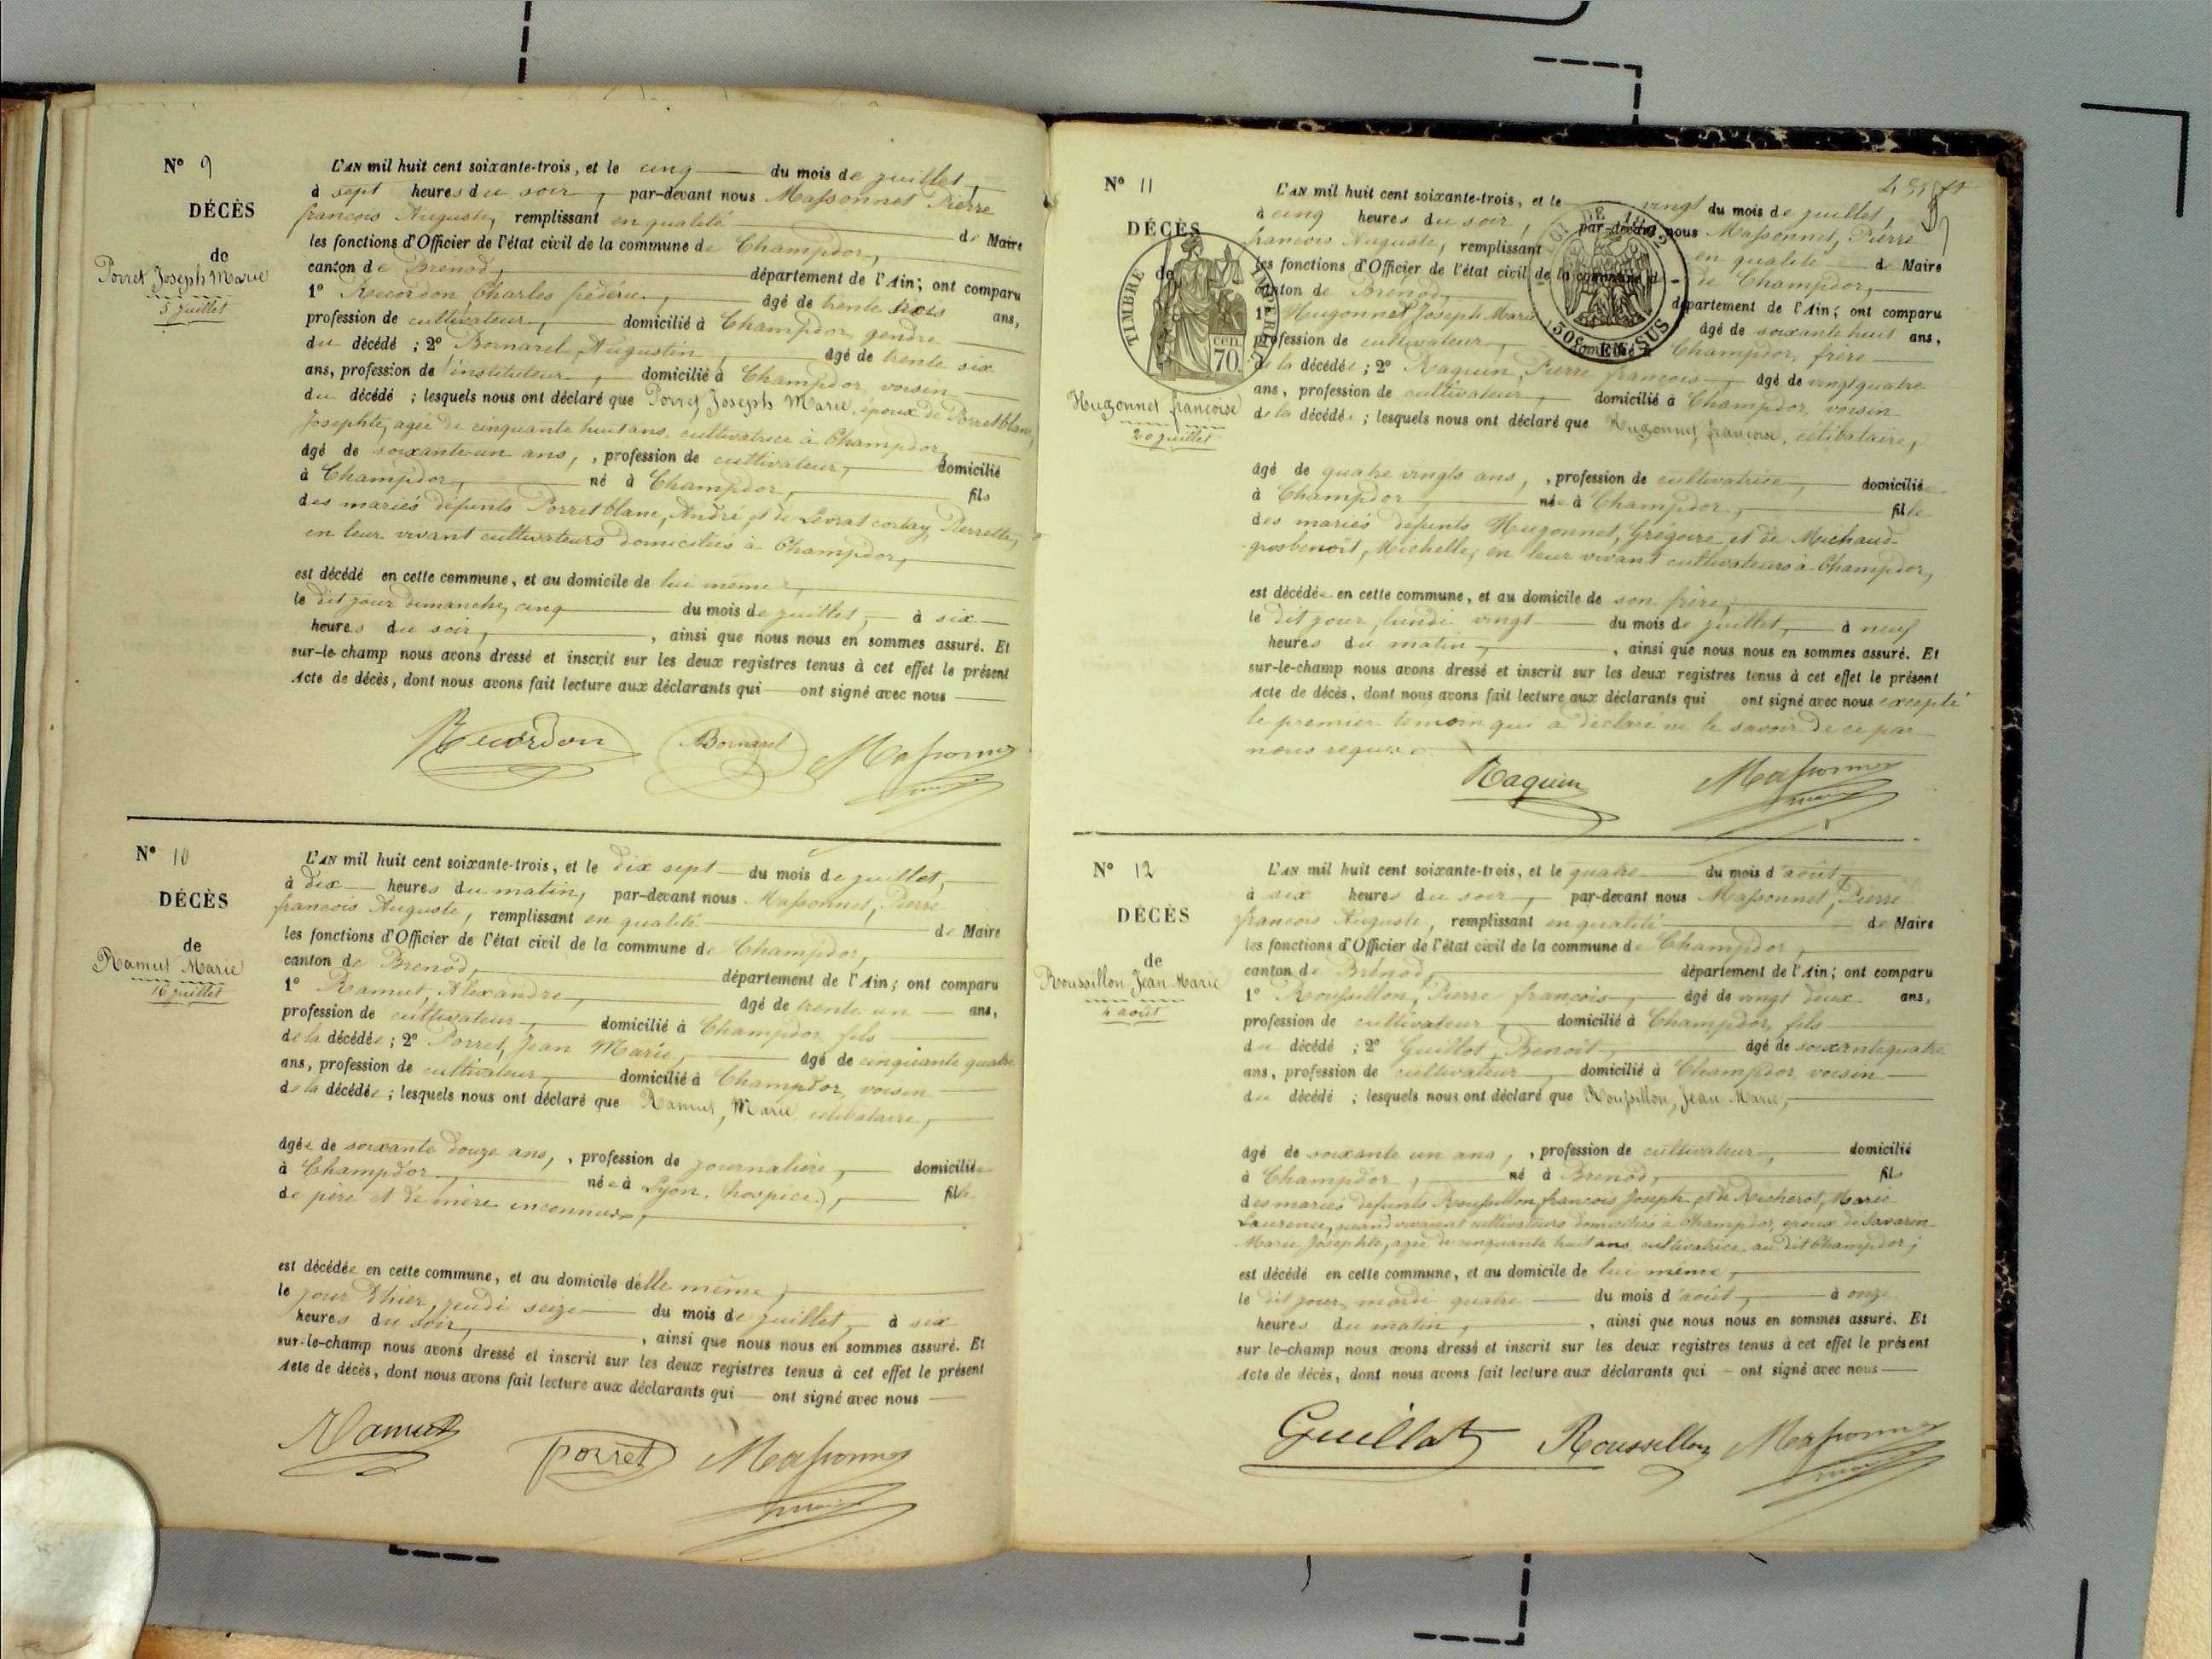 N° 9
DÉCÈS
de
Porret Joseph Marie
5 juillet
L'AN mil huit cent soixante-trois, et le cinq du mois de juillet,
à sept heures du soir, par-devant nous Massonnet Pierre
francois Auguste, remplissant en qualité de Maire
les fonctions d'Officier de l'état civil de la commune de Champdor,
canton de Brenod, département de l'Ain; ont comparu
1° Recordon Charles frédéric, âgé de trente trois ans,
profession de cultivateur, domicilié à Champdor, gendre
du décédé ; 2° Bornarel, Augustin, âgé de trente six
ans, profession de instituteur, domicilié à Champdor, voisin
du décédé ; lesquels nous ont déclaré que Porret Joseph Marie, époux de Porret blanc,
Josephte, agée de cinquante huit ans, cultivatrice à Champdor,
âgé de soixante un ans, , profession de cultivateur, domicilié
à Champdor, né à Champdor, fils
des mariés défunts Porret blanc, André et de Levrat cortay, Pierrette,
en leur vivant cultivateurs domiciliés à Champdor,
est décédé en cette commune, et au domicile de lui même,
le dit jour dimanche, cinq du mois de juillet, à six
heures du soir, , ainsi que nous nous en sommes assuré. Et
sur-le-champ nous avons dressé et inscrit sur les deux registres tenus à cet effet le présent
Acte de décès, dont nous avons fait lecture aux déclarants qui ont signé avec nous
Recordon Bornarel Massonnet
maire
N° 10
DÉCÈS
de
Ramut Marie
16 juillet
L'AN mil huit cent soixante-trois, et le dix sept du mois de juillet,
à dix heures du matin, par-devant nous Massonnet, Pierre
francois Auguste, remplissant en qualité de Maire
les fonctions d'Officier de l'état civil de la commune de Champdor,
canton de Brenod, département de l'Ain; ont comparu
1° Ramut, Alexandre, âgé de trente un ans,
profession de cultivateur, domicilié à Champdor, fils
de la décédée ; 2° Porret, Jean Marie, âgé de cinquante quatre
ans, profession de cultivateur, domicilié à Champdor, voisin
de la décédée ; lesquels nous ont déclaré que Ramut, Marie, célibataire,
âgée de soixante douze ans, , profession de journalière, domiciliée
à Champdor, née à Lyon, (hospice), fille
de père et de mère inconnus,
est décédée en cette commune, et au domicile d'elle même,
le jour d'hier, jeudi seize du mois de juillet, à six
heures du soir, , ainsi que nous nous en sommes assuré. Et
sur-le-champ nous avons dressé et inscrit sur les deux registres tenus à cet effet le présent
Acte de décès, dont nous avons fait lecture aux déclarants qui ont signé avec nous
Ramut porret Massonnet
maire
N° 11
DÉCÈS
de
TIMBRE IMPÉRIAL
70 cen.
Hugonnet françoise
20 juillet
LOI DE 1862
50c EN SUS
L'AN mil huit cent soixante-trois, et le vingt du mois de juillet,
à cinq heures du soir, par-devant nous Massonnet, Pierre
francois Auguste, remplissant en qualité de Maire
les fonctions d'Officier de l'état civil de la commune de Champdor,
canton de Brénod, département de l'Ain; ont comparu
1° Hugonnet Joseph Marie âgé de soixante huit ans,
profession de cultivateur, domicilié à Champdor, frère
de la décédée ; 2° Raquin, Pierre françois, âgé de vingt quatre
ans, profession de cultivateur, domicilié à Champdor, voisin
de la décédée ; lesquels nous ont déclaré que Hugonnet, francoise, célibataire,
âgé de quatre vingts ans, , profession de cultivatrice, domiciliée
à Champdor, née à Champdor, fille
des mariés défunts Hugonnet, Grégoire et de Michaud
grosbenoit, Michelle, en leur vivant cultivateurs à Champdor,
est décédée en cette commune, et au domicile de son frère,
le dit jour, lundi vingt du mois de juillet, à neuf
heures du matin, , ainsi que nous nous en sommes assuré. Et
sur-le-champ nous avons dressé et inscrit sur les deux registres tenus à cet effet le présent
Acte de décès, dont nous avons fait lecture aux déclarants qui ont signé avec nous excepté
le premier temoin qui a déclaré ne le savoir de ce par
nous requis
Raquin Massonnet
maire
N° 12
DÉCÈS
de
Roussillon Jean Marie
4 août
L'AN mil huit cent soixante-trois, et le quatre du mois d'août,
à six heures du soir, par-devant nous Massonnet, Pierre
francois Auguste, remplissant en qualité de Maire
les fonctions d'Officier de l'état civil de la commune de Champdor,
canton de Brénod, département de l'Ain; ont comparu
1° Roussillon, Pierre francois, âgé de vingt deux ans,
profession de cultivateur, domicilié à Champdor, fils
du décédé ; 2° Guillot, Benoit, âgé de soixante quatre
ans, profession de cultivateur, domicilié à Champdor, voisin
du décédé ; lesquels nous ont déclaré que Roussillon, Jean Marie,
âgé de soixante un ans, , profession de cultivateur, domicilié
à Champdor, né à Brenod, fils
des mariés défunts Roussillon, francois Joseph et de Richerot, Marie
Laurence, quand vivaient cultivateurs domiciliés à Champdor, époux de Savarin
Marie Josephte, agée de cinquante huit ans, cultivatrice au dit Champdor;
est décédé en cette commune, et au domicile de lui même,
le dit jour, mardi quatre du mois d'août, à onze
heures du matin, , ainsi que nous nous en sommes assuré. Et
sur-le-champ nous avons dressé et inscrit sur les deux registres tenus à cet effet le présent
Acte de décès, dont nous avons fait lecture aux déclarants qui ont signé avec nous
Guillot Roussillon Massonnet
maire